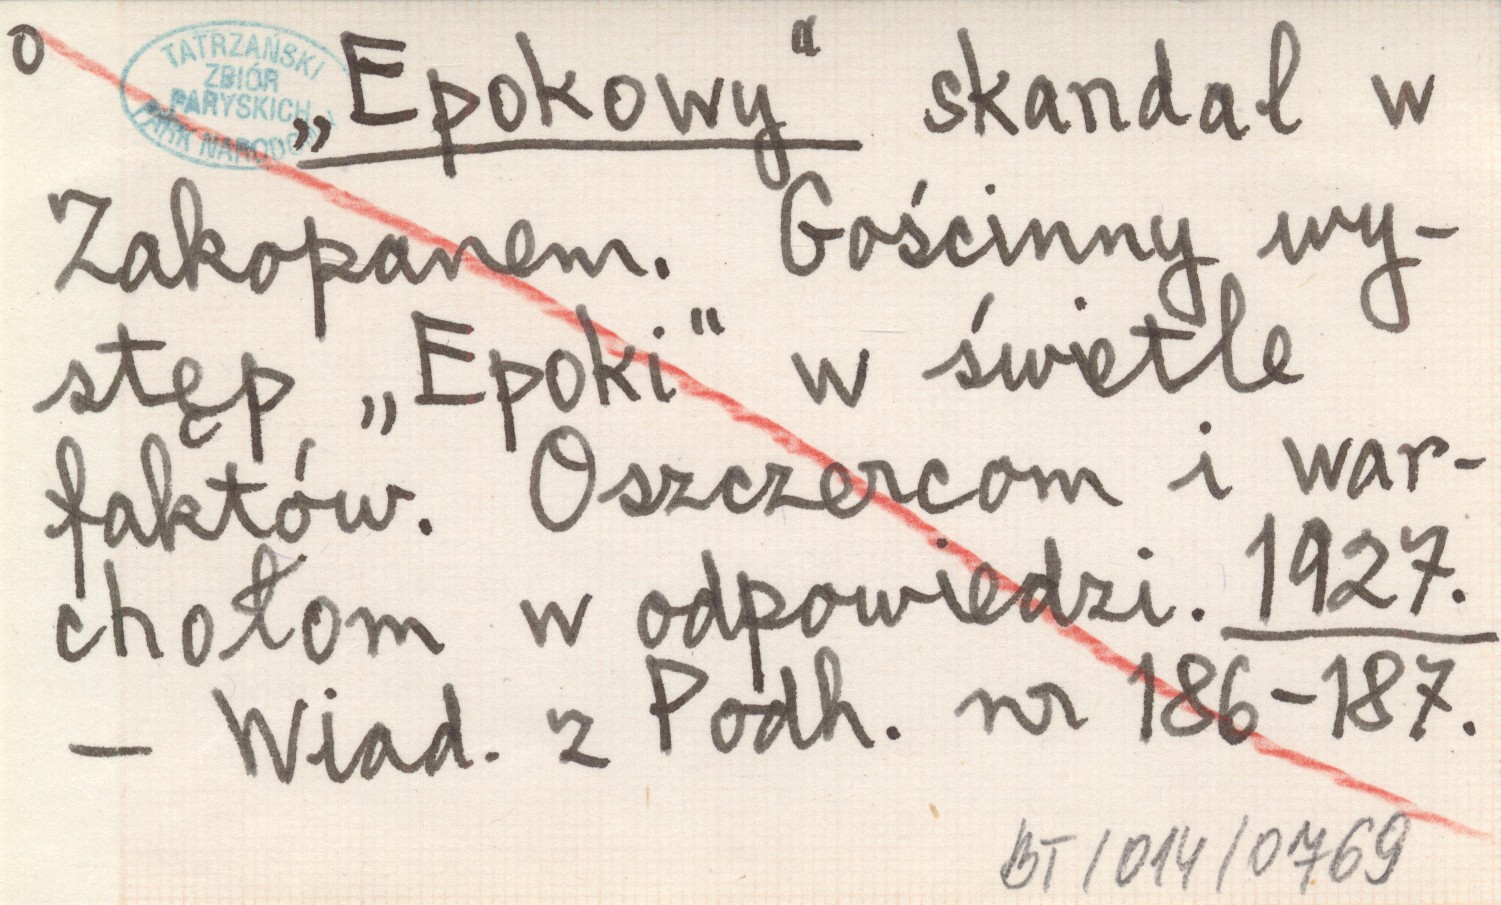 o
TATRZAŃSKI
ZBIÓR
PARYSKICH
PARK NARODOWY
„Epokowy“ skandal w
Zakopanem. Gościnny wy-
stęp „Epoki“ w świetle
faktów. Oszczercom i war-
chołom w odpowiedzi. 1927.
— Wiad. z Podh. nr 186-187.
BT/014/0769